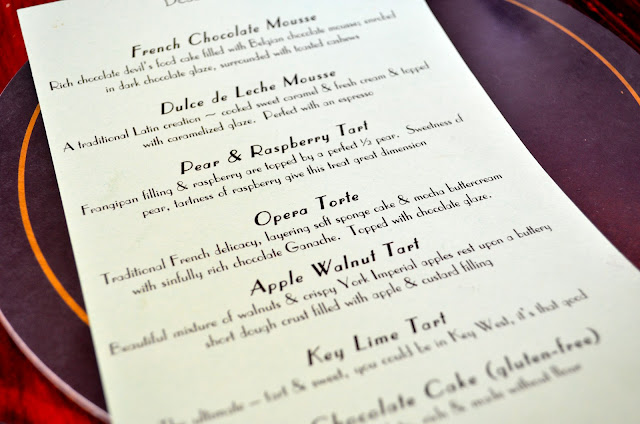 French Chocolate Mousse
Rich chocolate devil's food cake filled with Belgian chocolate mousse; enrobed
in dark chocolate glaze, surrounded with toasted cashews
Dulce de Leche Mousse
A traditional Latin creation ~ cooked sweet caramel & fresh cream & topped
with caramelized glaze. Perfect with an espresso
Pear & Raspberry Tart
Frangipan filling & raspberry are topped by a perfect ½ pear. Sweetness of
pear, tartness of raspberry give this treat great dimension
Opera Torte
Traditional French delicacy, layering soft sponge cake & mocha buttercream
with sinfully rich chocolate Ganache. Topped with chocolate glaze.
Apple Walnut Tart
Beautiful mixture of walnuts & crispy York Imperial apples rest upon a buttery
short dough crust filled with apple & custard filling
Key Lime Tart
The ultimate – tart & sweet, you could be in Key West, it's that good
Chocolate Cake (gluten-free)
rich & made without flour